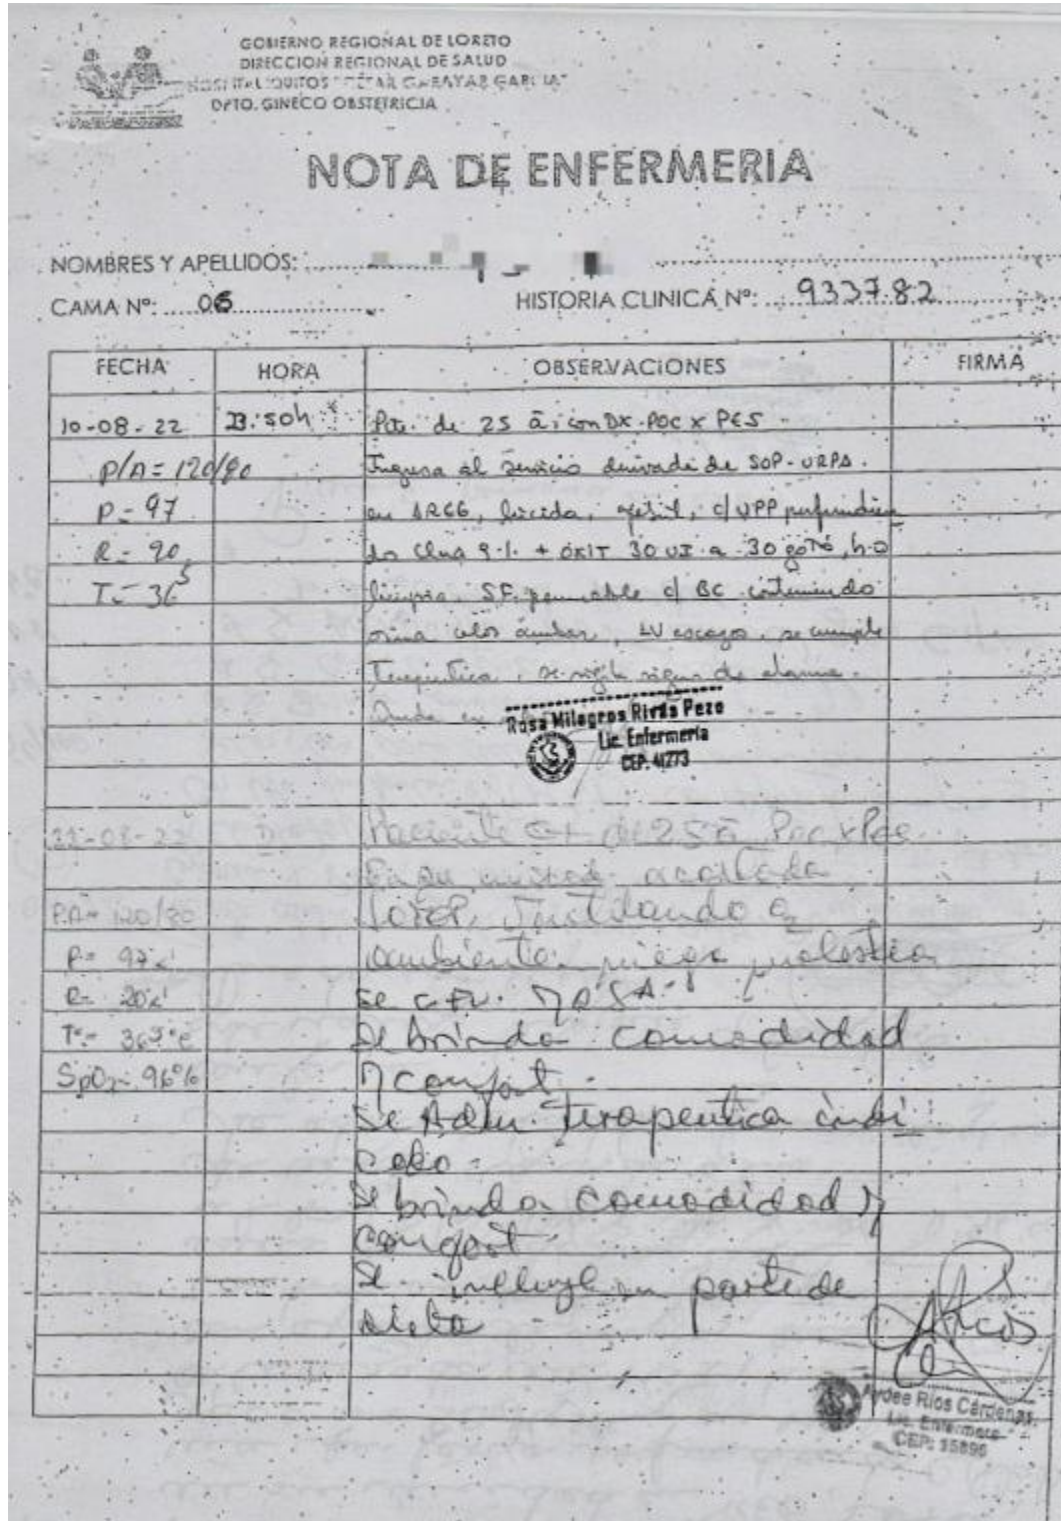 GOBIERNO REGIONAL DE LORETO
DIRECCION REGIONAL DE SALUD
HOSPITAL IQUITOS "CÉSAR GARAYAR GARCIA"
DPTO. GINECO OBSTETRICIA
NOTA DE ENFERMERIA
NOMBRES Y APELLIDOS:
CAMA Nº: 06 HISTORIA CLINICA Nº: 933782
FECHA HORA OBSERVACIONES FIRMA
10-08-22 Pcte. de 25 a, con DX. POC x PES
P/A = Ingresa al servicio derivada de SOP-URPA.
P = 97 en AREG, lúcida, c/VPP perfundien
R = 20 do ClNa 9% + OXIT 30 UI a 30 gotas, h.o
T = 36 5 limpia. SF. permeable c/ BC conteniendo
orina color ambar, LV escaso, se cumple
Terapéutica, se vigila signos de alarma.
Queda en
Rosa Milagros Rivas Pezo
Lic. Enfermería
CEP. 41273
Paciente de 25 a
En su unidad acostada
P.A = 120/80 LOTEP, ventilando
P = 97 x' ambiente. niega molestia
R = 20 x' se C.FV.
Tº = Se brinda comodidad
SpO2 = 96% y confort.
Se Adm. Terapeutica indi
cado.
Se brinda comodidad y
confort.
Se incluye en parte de
dieta
Aydee Rios Cárdenas
Lic. Enfermera